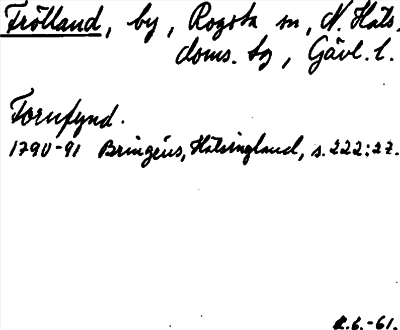 Frötland, by, Rogsta sn, N. Häls.
doms. sg, Gävl. l.
Fornfynd.
1790-91 Bringéus, Hälsingland, s. 222:27.
R.6.-61.